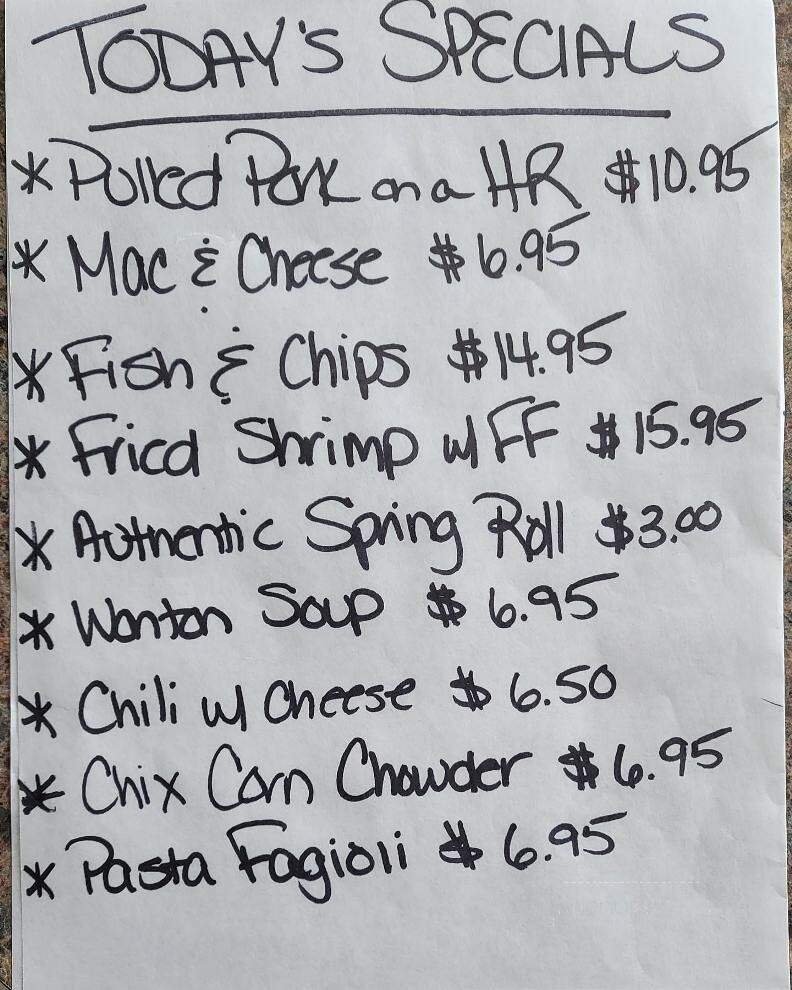 TODAY'S SPECIALS
* Pulled Pork on a HR $10.95
* Mac & Cheese $6.95
* Fish & Chips $14.95
* Fried Shrimp w/ FF $15.95
* Authentic Spring Roll $3.00
* Wonton Soup $6.95
* Chili w/ Cheese $6.50
* Chix Corn Chowder $6.95
* Pasta Fagioli $6.95